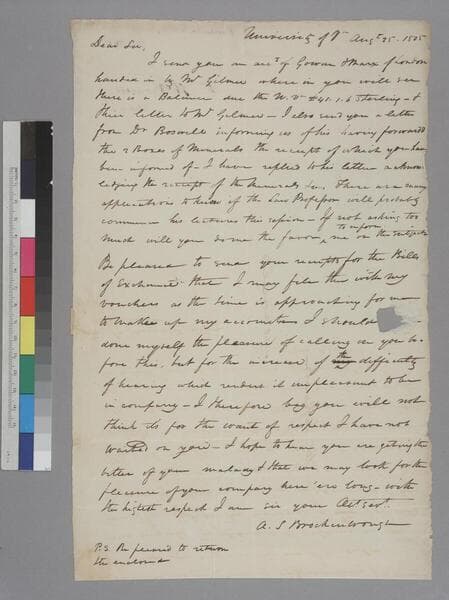 University of Va Augt 25 - 1825
Dear Sir,
I send you an acct of Gowan & Marx of London
handed in by Mr Gilmer where in you will see
there is a Ballance due the U. Va £41.1.6 Sterling - &
their letter to Mr Gilmer - I also send you a letter
from Dr Boswell informing us of his having forwarded
the 2 Boxes of Minerals the receipt of which you have
been informed of - I have replied to his letter acknow-
ledging the receipt of the minerals &c. There are many
applications to know if the Law Professor will probably
commence his lectures this session - If not asking too
much will you do me the favour, to inform me on the subject
Be pleased to send your receipts for the Bills
of Exchange that I may file them with my
vouchers as the time is approaching for me
to make up my accounts I should
done myself the pleasure of calling on you be-
fore this, but for the increase of the difficulty
of hearing which renders it unpleasant to be
in company - I therefore beg you will not
think its for the want of respect I have not
waited on you - I hope to hear you are getting the
better of your malady & that we may look for the
pleasure of your company here 'ere long - with
the highest respect I am sir your Obt Sevt.
A. S Brockenbrough
P.S. Be pleased to return
the enclosed